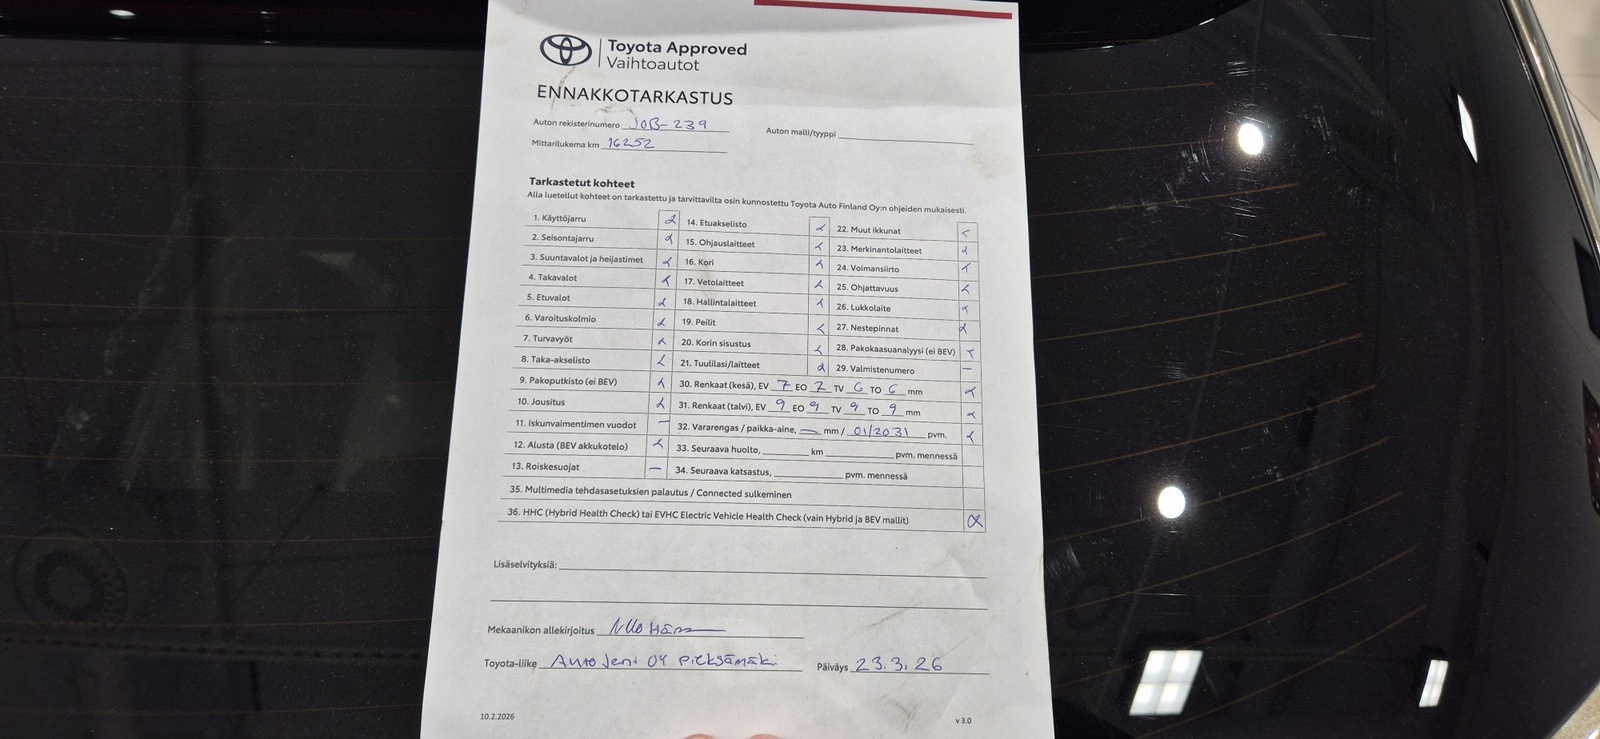 Toyota Approved
Vaihtoautot
ENNAKKOTARKASTUS
Auton rekisterinumero JOB-239 Auton malli/tyyppi
Mittarilukema km 16252
Tarkastetut kohteet
Alla luetellut kohteet on tarkastettu ja tarvittavilta osin kunnostettu Toyota Auto Finland Oy:n ohjeiden mukaisesti.
1. Käyttöjarru
2. Seisontajarru
3. Suuntavalot ja heijastimet
4. Takavalot
5. Etuvalot
6. Varoituskolmio
7. Turvavyöt
8. Taka-akselisto
9. Pakoputkisto (ei BEV)
10. Jousitus
11. Iskunvaimentimien vuodot —
12. Alusta (BEV akkukotelo)
13. Roiskesuojat —
14. Etuakselisto
15. Ohjauslaitteet
16. Kori
17. Vetolaitteet
18. Hallintalaitteet
19. Peilit
20. Korin sisustus
21. Tuulilasi/laitteet
22. Muut ikkunat
23. Merkinantolaitteet
24. Voimansiirto
25. Ohjattavuus
26. Lukkolaite
27. Nestepinnat
28. Pakokaasuanalyysi (ei BEV)
29. Valmistenumero —
30. Renkaat (kesä), EV 7 EO 7 TV 6 TO 6 mm
31. Renkaat (talvi), EV 9 EO 9 TV 9 TO 9 mm
32. Vararengas / paikka-aine, — mm / 01/2031 pvm.
33. Seuraava huolto, km pvm. mennessä
34. Seuraava katsastus, pvm. mennessä
35. Multimedia tehdasasetuksien palautus / Connected sulkeminen
36. HHC (Hybrid Health Check) tai EVHC Electric Vehicle Health Check (vain Hybrid ja BEV mallit)
Lisäselvityksiä:
Mekaanikon allekirjoitus
Toyota-liike Auto Jeni OY Pieksämäki Päiväys 23.3.26
10.2.2026 v 3.0